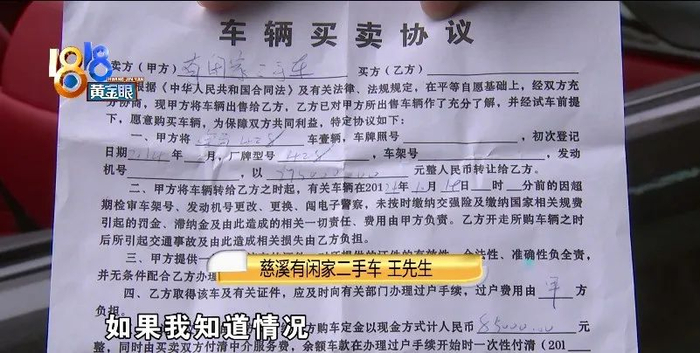 1818
黄金眼
车辆买卖协议
卖方(甲方) 有闲家二手车 买方(乙方)
根据《中华人民共和国合同法》及有关法律、法规规定,在平等自愿基础上,经双方充
分协商,现甲方将车辆出售给乙方,乙方已对甲方所出售车辆作了充分了解,并经试车前提
下,愿意购买车辆,为保障双方共同利益,特定协议如下:
一、甲方将 车壹辆,车牌照号: ,初次登记
日期 2014 年 月,厂牌型号 428 车架号 ,发动
机号 ,以 元整人民币转让给乙方。
二、甲方将车辆转给乙方之时起,有关车辆在201 年 月 日 时 分前的因超
期检审车架号、发动机号更改、更换、闯电子警察,未按时缴纳交强险及缴纳国家相关规费
引起的罚金、滞纳金及由此造成的相关一切责任、费用由甲方负责。乙方开走所购车辆之时
后所引起交通事故及由此造成相关损失由乙方负担。
三、甲方提供 合法性、准确性负全责,
并无条件配合乙方办理
慈溪有闲家二手车 王先生
四、乙方取得该车及有关证件,应及时向有关部门办理过户手续,过户费用由 方
负担。
方购车定金以现金方式计人民币 元
整,同时由买卖双方付清中介服务费,余额车款在办理过户手续开始时一次性付清(201
如果我知道情况